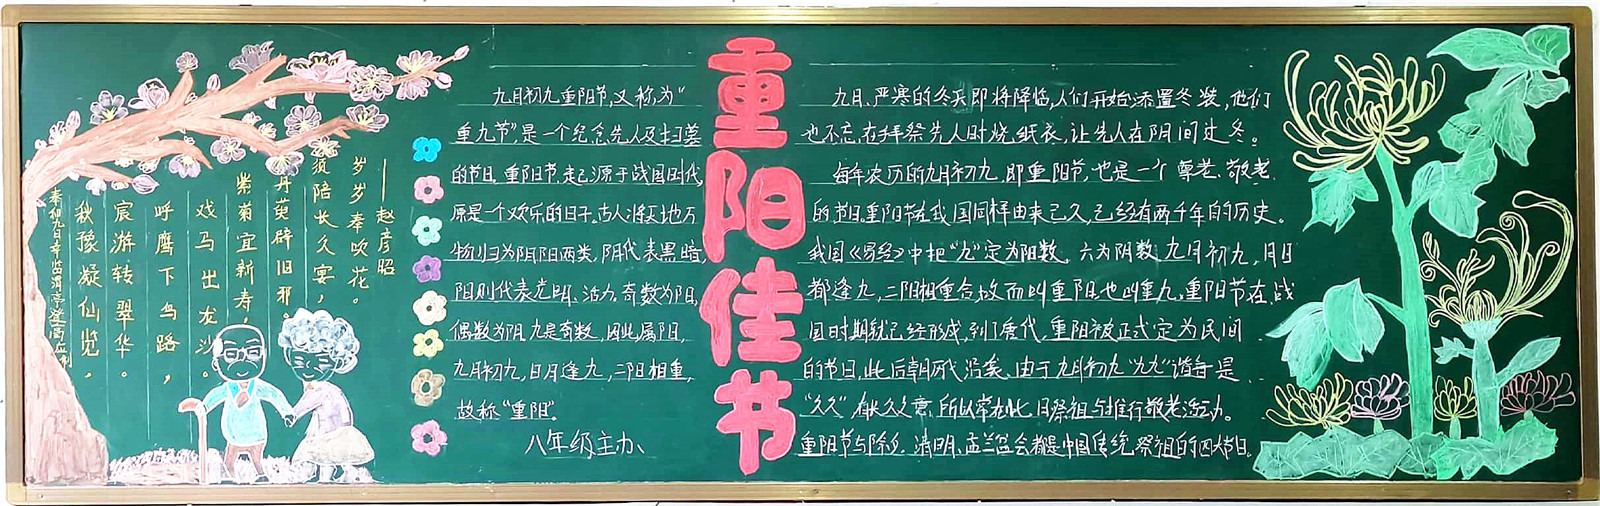 重阳佳节
奉和九日幸临渭亭登高应制
秋豫凝仙览，
宸游转翠华。
呼鹰下鸟路，
戏马出龙沙。
紫菊宜新寿，
丹萸辟旧邪。
须陪长久宴，
岁岁奉吹花。
——赵彦昭
九月初九重阳节,又称,为“
重九节”,是一个纪念先人及扫墓
的节日。重阳节,起源于战国时代,
原是一个欢乐的日子。古人将天地万
物归为阴阳两类,阴代表黑暗,
阳则代表光明、活力。奇数为阳,
偶数为阴。九是奇数,因此属阳,
九月初九,日月逢九,二阳相重,
故称“重阳”。
八年级主办
九月、严寒的冬天即将降临,人们开始添置冬装,他们
也不忘在拜祭先人时烧纸衣,让先人在阴间过冬。
每年农历的九月初九,即重阳节,也是一个尊老、敬老
的节日。重阳节在我国同样由来已久,已经有两千年的历史。
我国《易经》中把“九”定为阳数,六为阴数,九月初九,月日
都逢九,二阳相重合,故而叫重阳,也叫重九。重阳节在战
国时期就已经形成,到了唐代,重阳被正式定为民间
的节日,此后朝历代沿袭。由于九月初九“九九”谐音是
“久久”有长久之意,所以常在此日祭祖与推行敬老活动。
重阳节与除夕、清明、盂兰盆会都是中国传统祭祖的四大节日。